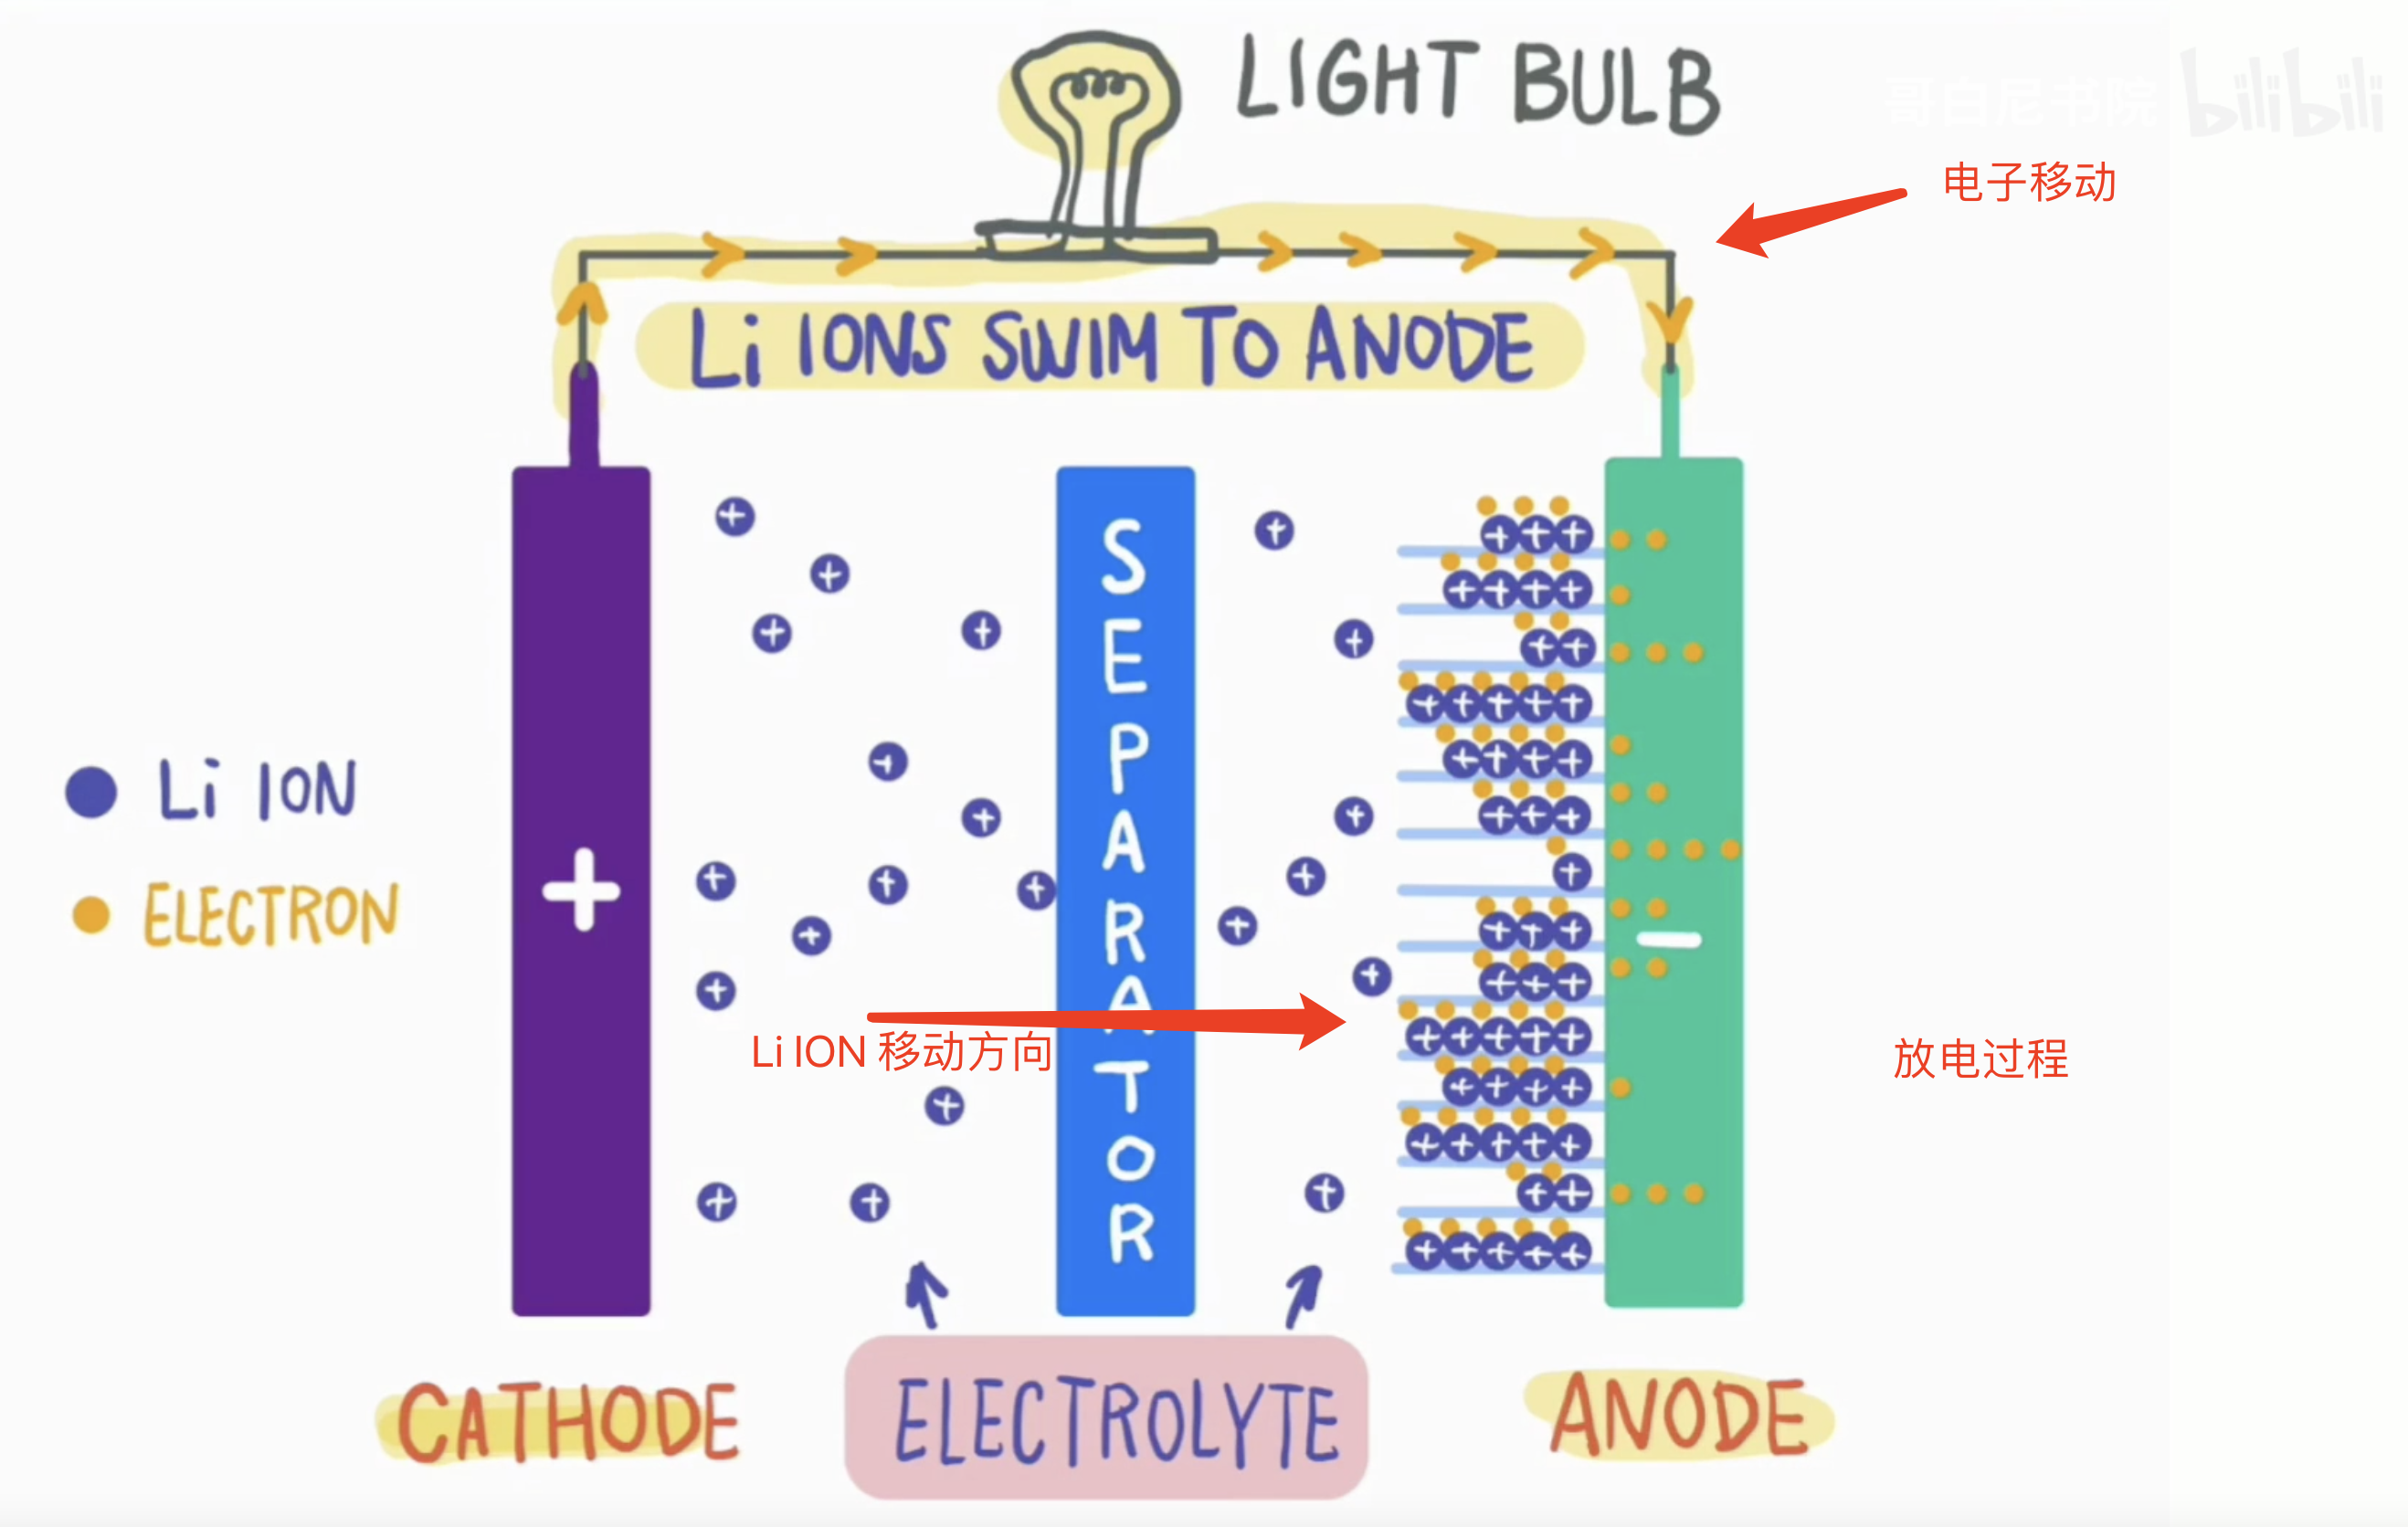 LIGHT BULB
哥白尼书院 bilibili
电子移动
Li IONS SWIM TO ANODE
SEPARATOR
Li ION
ELECTRON
+
−
Li ION 移动方向
放电过程
CATHODE
ELECTROLYTE
ANODE